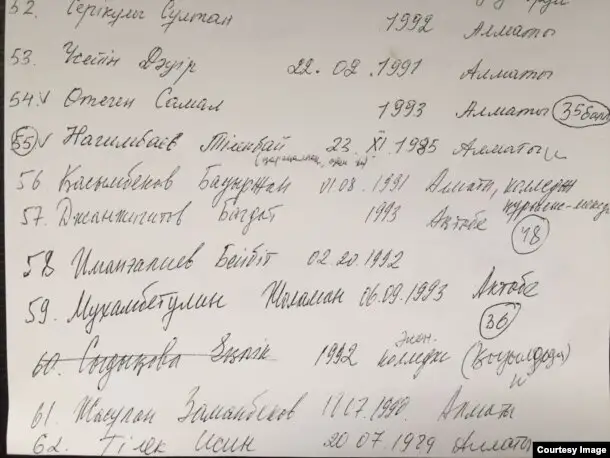 52. Серікұлы Сұлтан 1992 Алматы
53. Үсейін Дәуір 22.02.1991 Алматы
54.v Өтеген Самал 1993 Алматы 35балл
55v Нагимбаев Тілекбай 23.XI.1985 Алматы
56 Касымбеков Бауыржан 01.08.1991 Алматы, колледж
57. Джанжигитов Багдат 1993 Ақтобе
48
58 Иманғалиев Бейбіт 02.20.1992
59. Мухамбетулин Жоламан 06.09.1993 Актобе
36
Экон.
60. Сыдыкова 1992 колледж (Қызылорда)
61. Жасулан Заманбеков 1990. Алматы
62. Тілек Исин 20 07.1989 Алматы
Courtesy Image